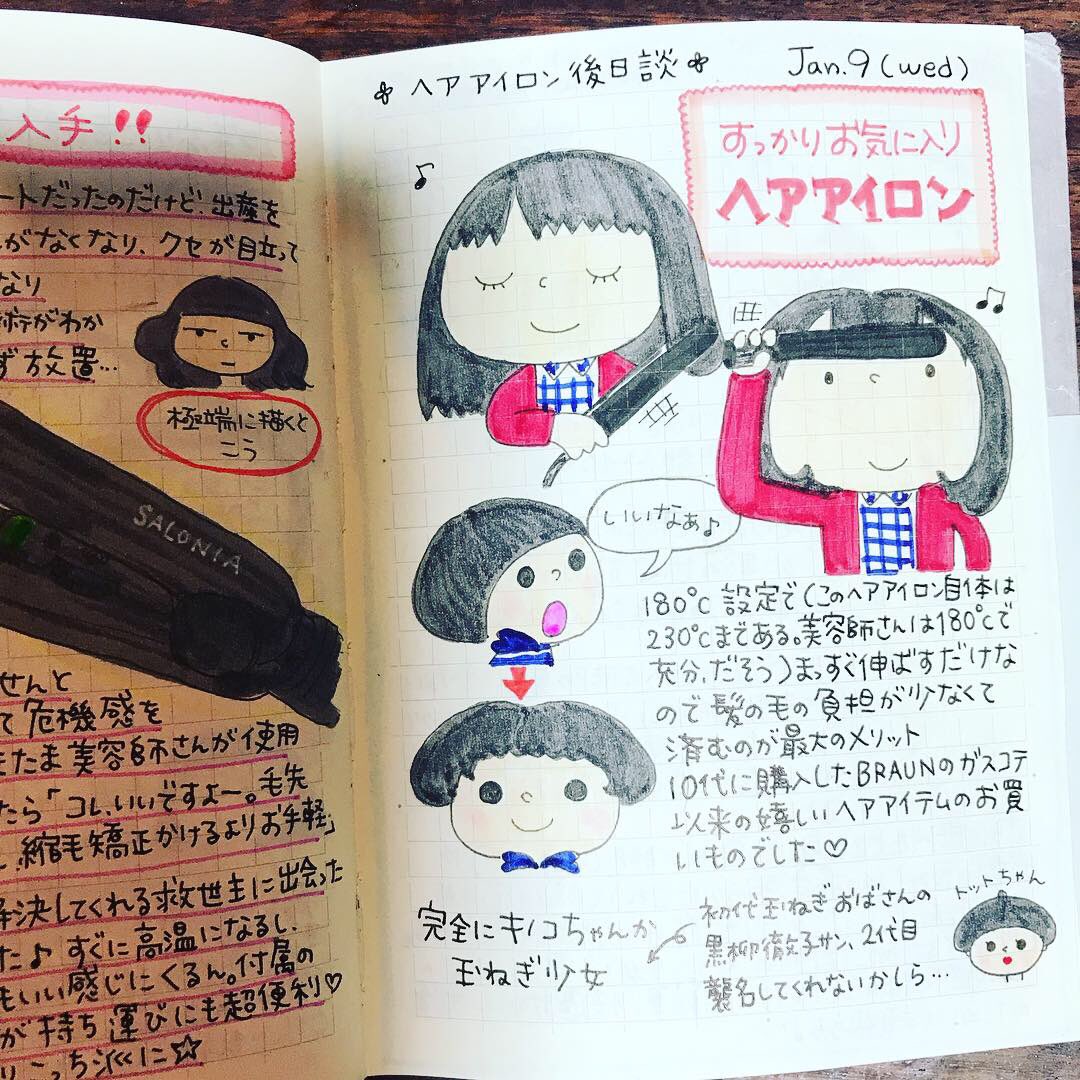 入手!!
ートだったのだけど、出産を
がなくなり、クセが目立って
なり
術がわか
ず放置…
極端に描くと
こう
SALONIA
せんと
て危機感を
たま美容師さんが使用
たら「コレ、いいですよー。毛先
縮毛矯正かけるよりお手軽」
解決してくれる救世主に出会った
た♪すぐに高温になるし、
もいい感じにくるん。付属の
が持ち運びにも超便利♡
こっち派に☆
ヘアアイロン後日談
Jan.9(wed)
すっかりお気に入り
ヘアアイロン
いいなぁ♪
180℃設定で(このヘアアイロン自体は
230℃まである。美容師さんは180℃で
充分、だそう)まっすぐ伸ばすだけな
ので髪の毛の負担が少なくて
済むのが最大のメリット
10代に購入したBRAUNのガスコテ
以来の嬉しいヘアアイテムのお買
いものでした♡
完全にキノコちゃんか
玉ねぎ少女
初代玉ねぎおばさんの
黒柳徹子サン、2代目
襲名してくれないかしら…
トットちゃん